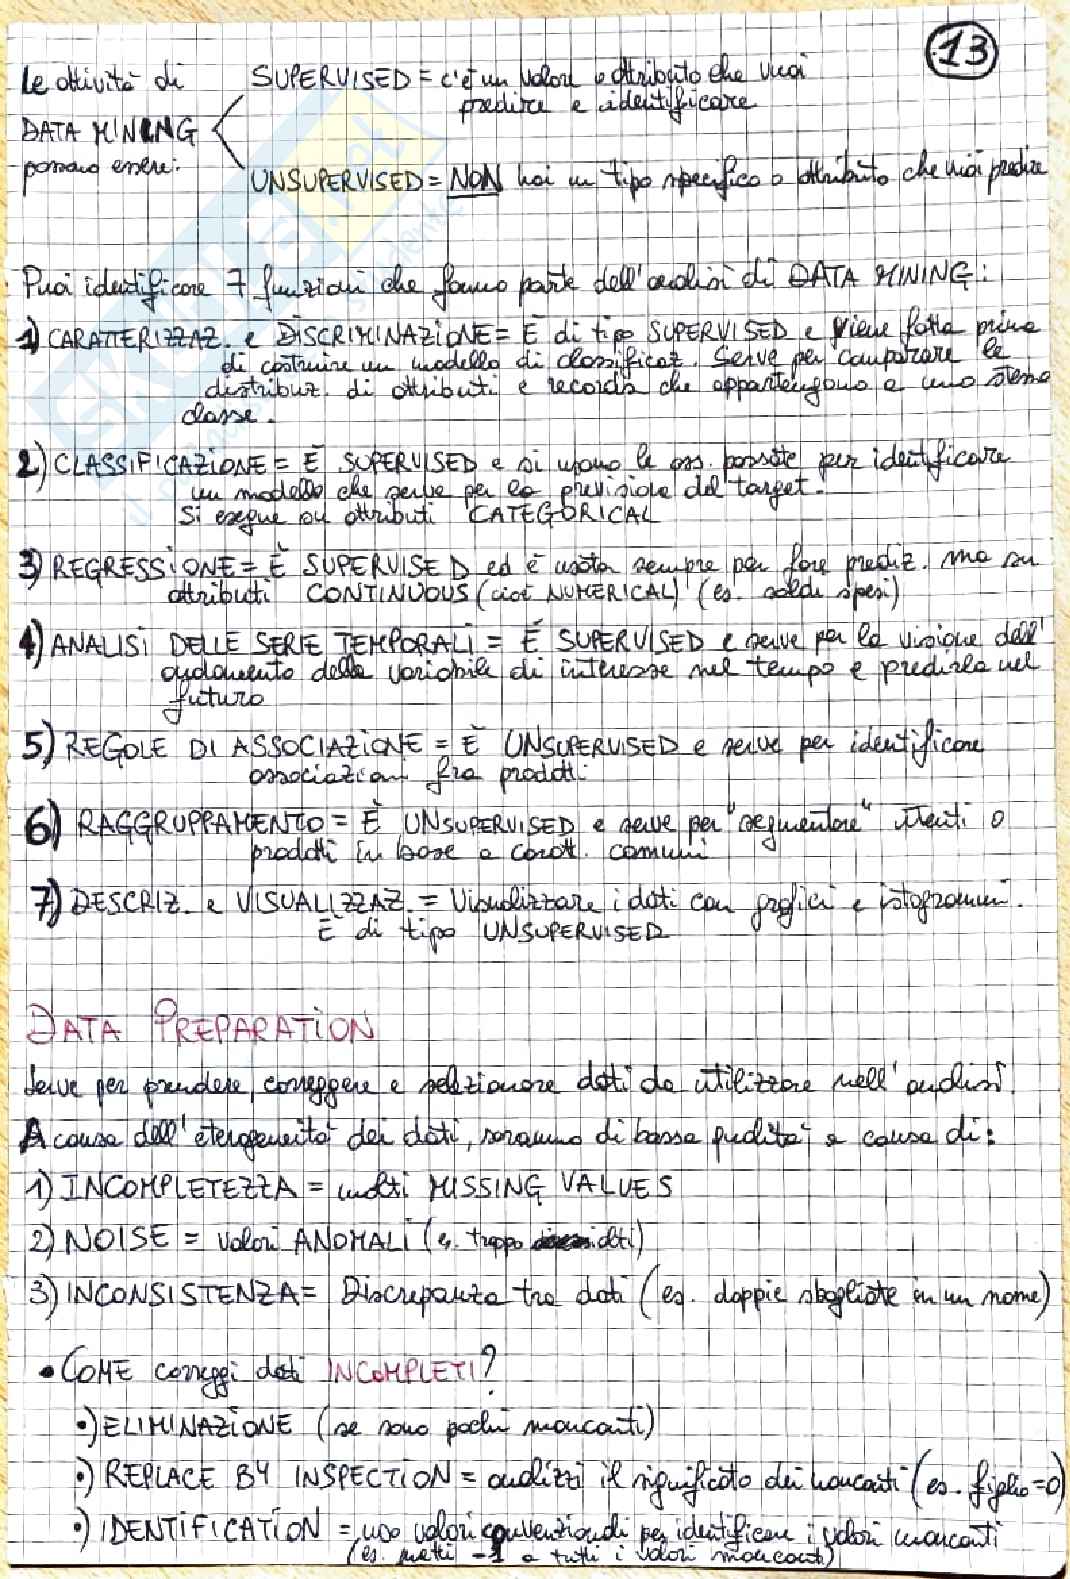 13
Le attività di
DATA MINING
possono essere:
SUPERVISED = c'è un valore o attributo che vuoi
predire e identificare
UNSUPERVISED = NON hai un tipo specifico o attributo che vuoi predire
Puoi identificare 7 funzioni che fanno parte dell'analisi di DATA MINING:
1) CARATTERIZZAZ. e DISCRIMINAZIONE = È di tipo SUPERVISED e viene fatta prima
di costruire un modello di classificaz. Serve per comparare le
distribuz. di attributi e records che appartengono a uno stessa
classe.
2) CLASSIFICAZIONE = È SUPERVISED e si usano le oss. passate per identificare
un modello che serve per la previsione del target.
Si esegue su attributi CATEGORICAL
3) REGRESSIONE = È SUPERVISED ed è usata sempre per fare prediz. ma su
attributi CONTINUOUS (cioè NUMERICAL) (es. soldi spesi)
4) ANALISI DELLE SERIE TEMPORALI = È SUPERVISED e serve per la visione dell'
andamento della variabile di interesse nel tempo e predirla nel
futuro
5) REGOLE DI ASSOCIAZIONE = È UNSUPERVISED e serve per identificare
associazioni fra prodotti
6) RAGGRUPPAMENTO = È UNSUPERVISED e serve per "segmentare" utenti o
prodotti in base a caratt. comuni
7) DESCRIZ. e VISUALIZZAZ. = Visualizzare i dati con grafici e istogrammi.
È di tipo UNSUPERVISED
DATA PREPARATION
Serve per prendere, correggere e selezionare dati da utilizzare nell'analisi.
A causa dell'eterogeneità dei dati, saranno di bassa qualità a causa di:
1) INCOMPLETEZZA = molti MISSING VALUES
2) NOISE = valori ANOMALI (es. troppo alti)
3) INCONSISTENZA = Discrepanza tra dati (es. doppie sbagliate in un nome)
• COME correggi dati INCOMPLETI?
•) ELIMINAZIONE (se sono pochi mancanti)
•) REPLACE BY INSPECTION = analizzi il significato dei mancanti (es. figlio=0)
•) IDENTIFICATION = uso valori convenzionali per identificare i valori mancanti
(es. metti -1 a tutti i valori mancanti)